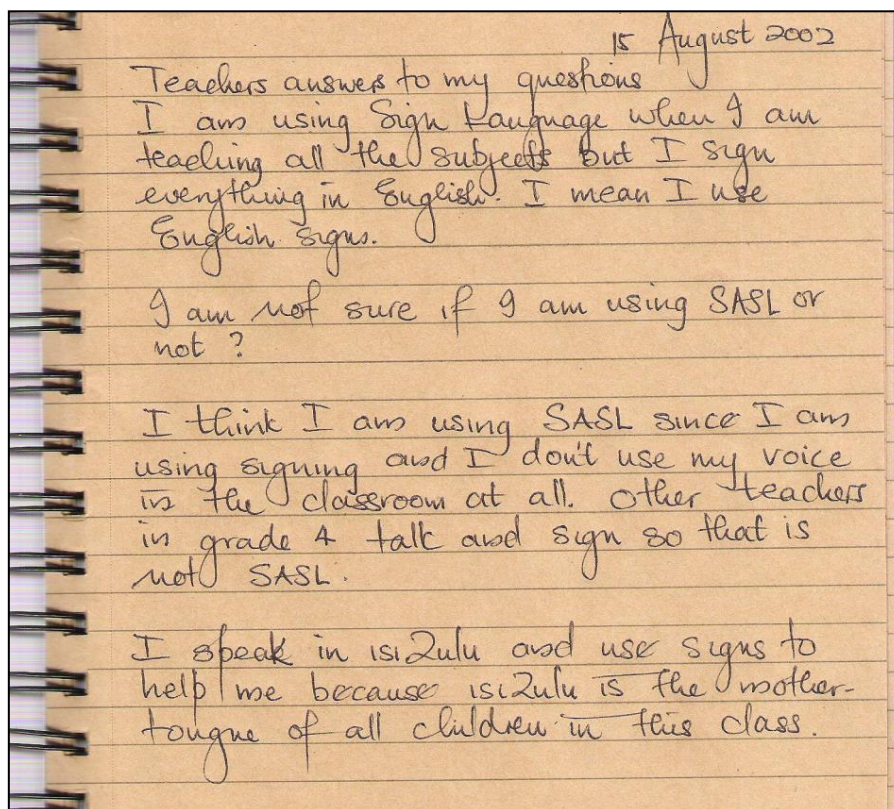 15 August 2002
Teachers answers to my questions
I am using Sign Language when I am
teaching all the subjects but I sign
everything in English. I mean I use
English signs.
I am not sure if I am using SASL or
not ?
I think I am using SASL since I am
using signing and I don't use my voice
in the classroom at all. Other teachers
in grade 4 talk and sign so that is
not SASL.
I speak in isiZulu and use signs to
help me because isiZulu is the mother-
tongue of all children in this class.